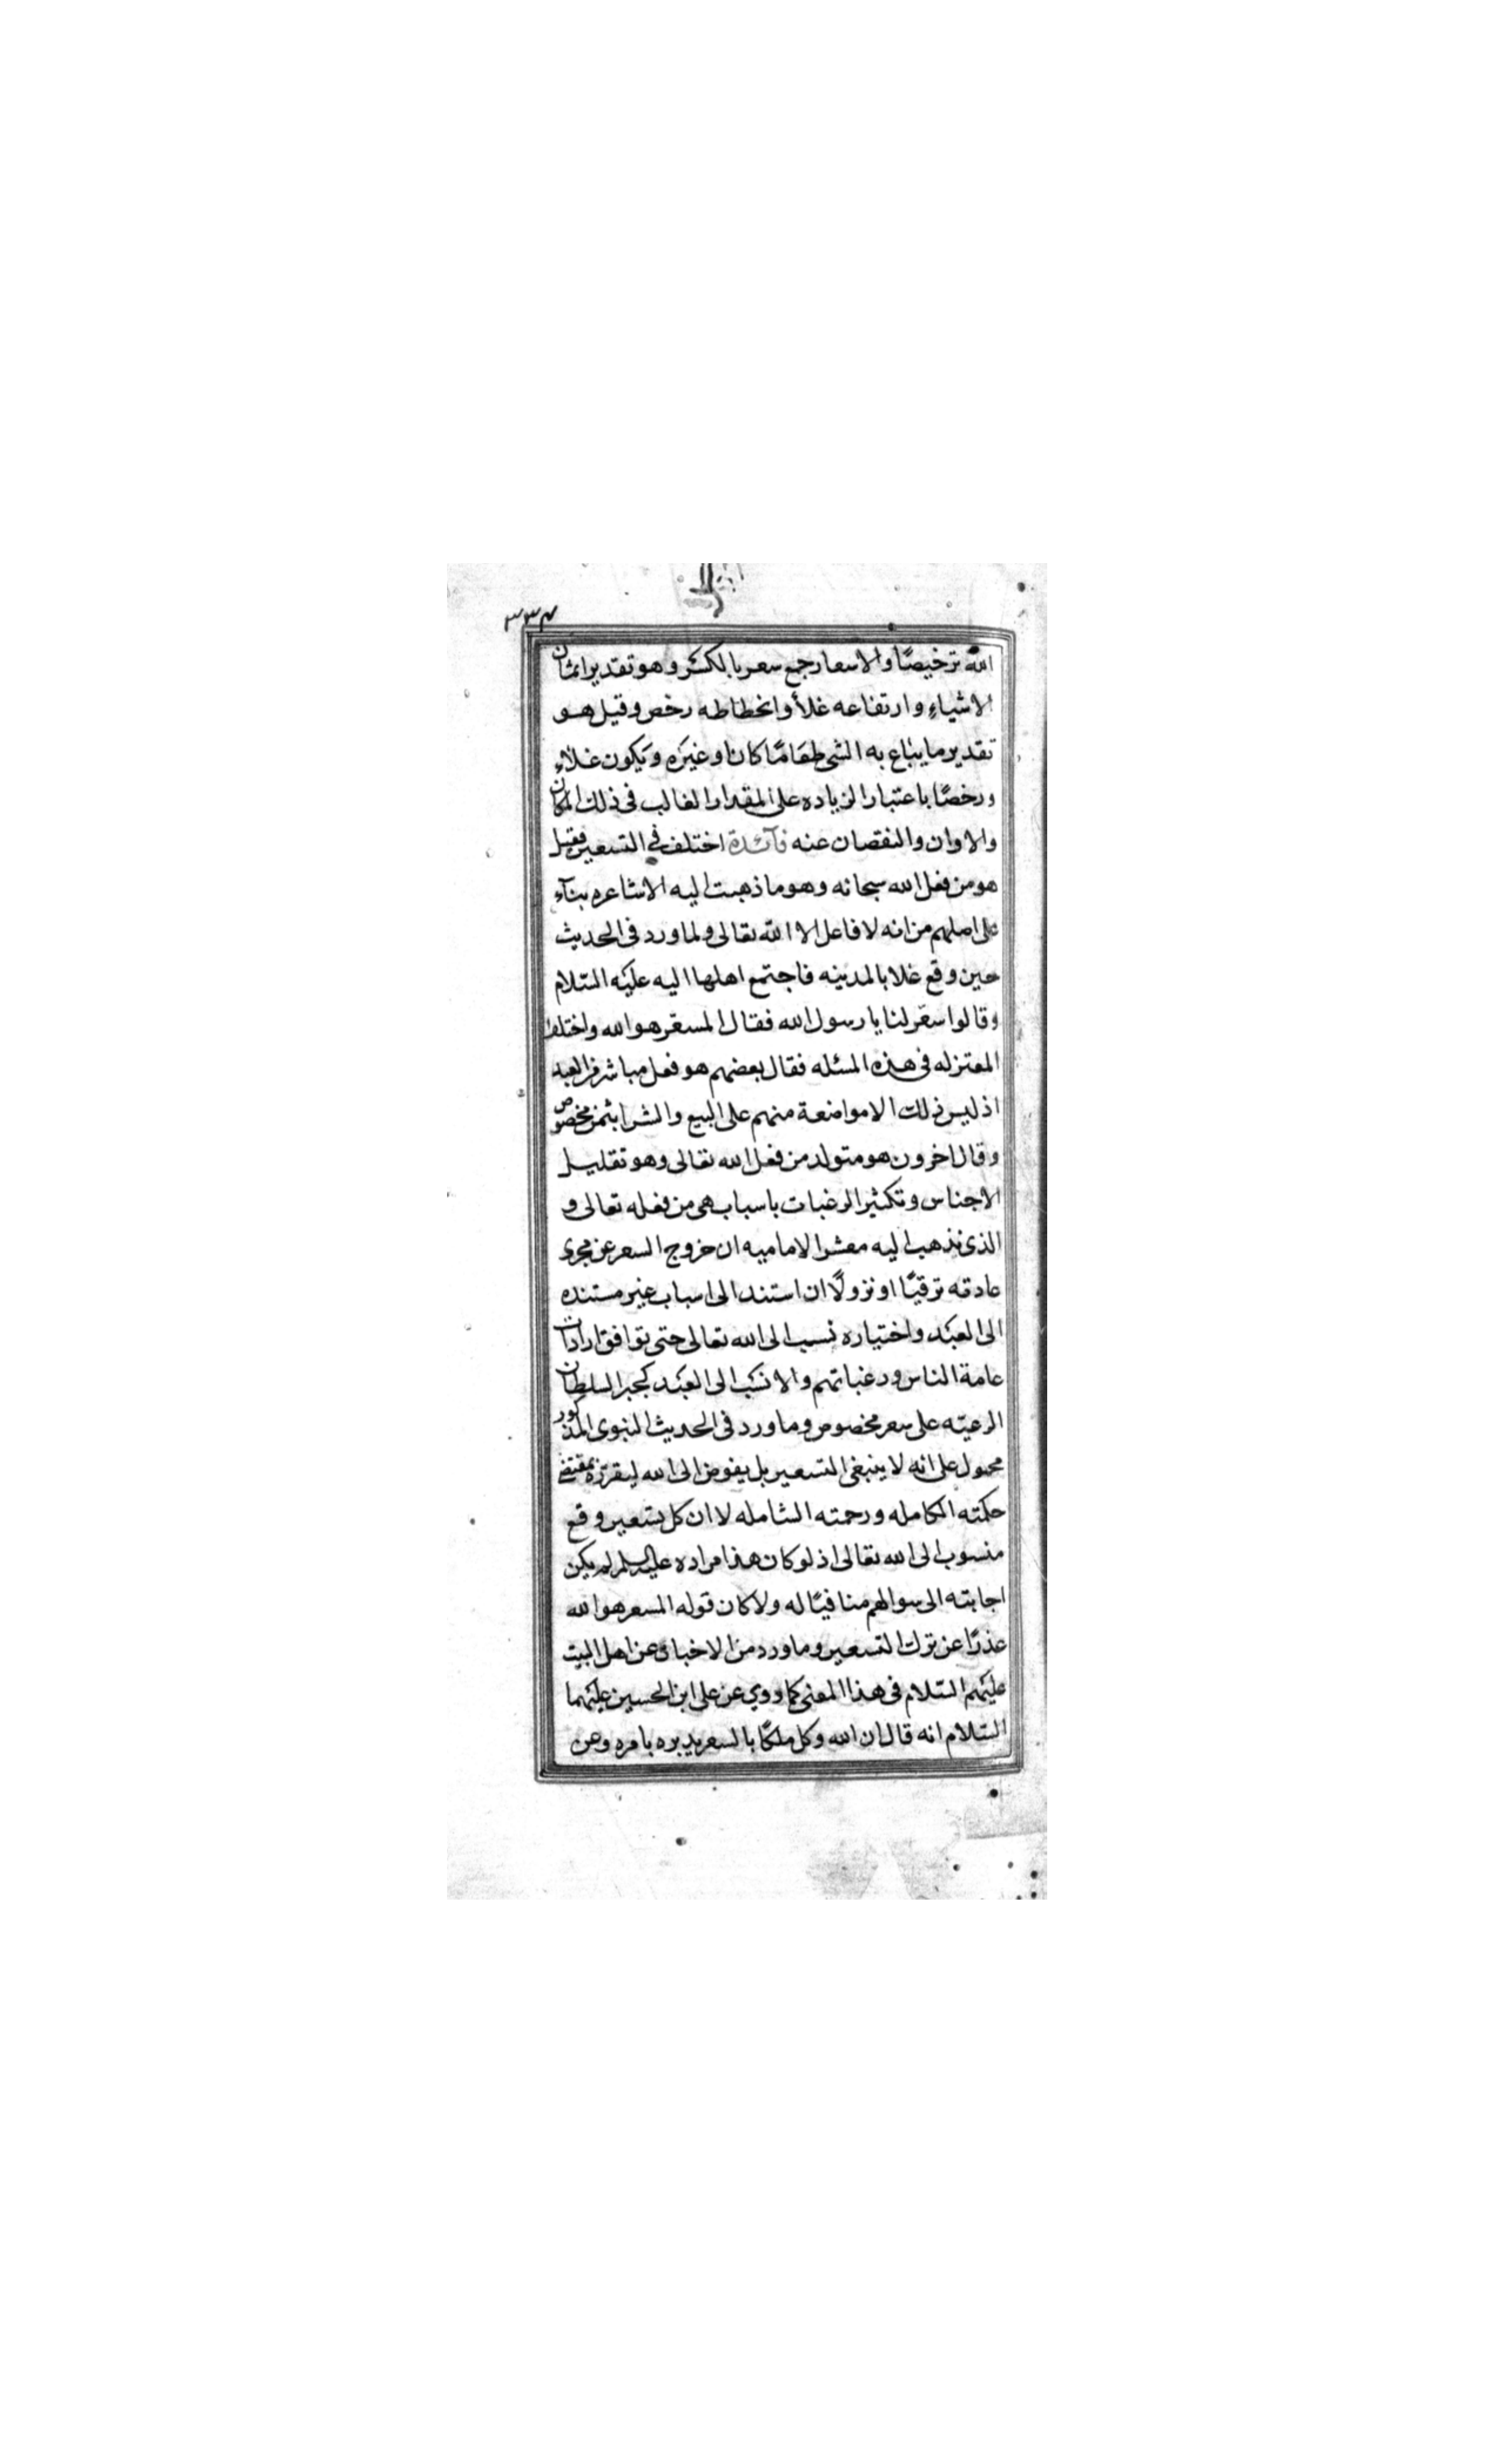 ٣٣٤
الله ترخيصًا والاسعار جمع سعر بالكسر وهو تقدير اثمان
الاشياءِ وارتفاعه غلأ وانحطاطه رخص وقيل هو
تقدير ما يباع به الشي طعَامًا كان او غيرَه ويكون غلاءِ
ورخصًا باعتبار الزياده على المقدار الغالب فى ذلك المكان
والاوان والنقصان عنه فآئدة اختلف في التسعير فقيل
هو من فعل الله سبحانه وهو ما ذهبت اليه الاشاعره بنآء
على اصلهم من انه لا فاعل الا الله تعالى ولما ورد فى الحديث
حين وقع غلا بالمدينه فاجتمع اهلها اليه عليَه السّلام
وقالوا سعّر لنا يا رسول الله فقال المسعّر هو الله واختلف
المعتزله فى هذه المسئله فقال بعضهم هو فعل مباشر من العبد
اذ ليس ذلك الا مواضعة منهم على البيع والشرا بثمن مخصوص
وقال اخرون هو متولد من فعل الله تعالى وهو تقليل
الاجناس وتكثير الرغبات باسباب هى من فعله تعالى و
الذى نذهب اليه معشر الاماميه ان خروج السعر عن مجرى
عادته ترقيًا او نزولًا ان استند الى اسباب غير مستنده
الى العبَد واختياره نسب الى الله تعالى حتى توافق ارادات
عامة الناس ورغباتهم والا نسَب الى العبَد كجبر السلطان
الرعيّه على سعر مخصوص وما ورد فى الحديث النبوى المذكور
محمول على انه لا ينبغى التسعير بل يفوض الى الله ليقرّره بمقتضى
حكمته الكامله ورحمته الشامله لا ان كل تسعير وقع
منسوب الى الله تعالى اذ لو كان هذا مراده عليه السلم لم يكن
اجابته الى سوالهم منافيًا له ولا كان قوله المسعر هو الله
عذرًا عن ترك التسعير وما ورد من الاخبار عن اهل البيت
عليَهم السّلام فى هذا المعنى كما روي عن على ابن الحسين عليَهما
السّلام انه قال ان الله وكل ملكًا بالسعر يدبره بامره وعن